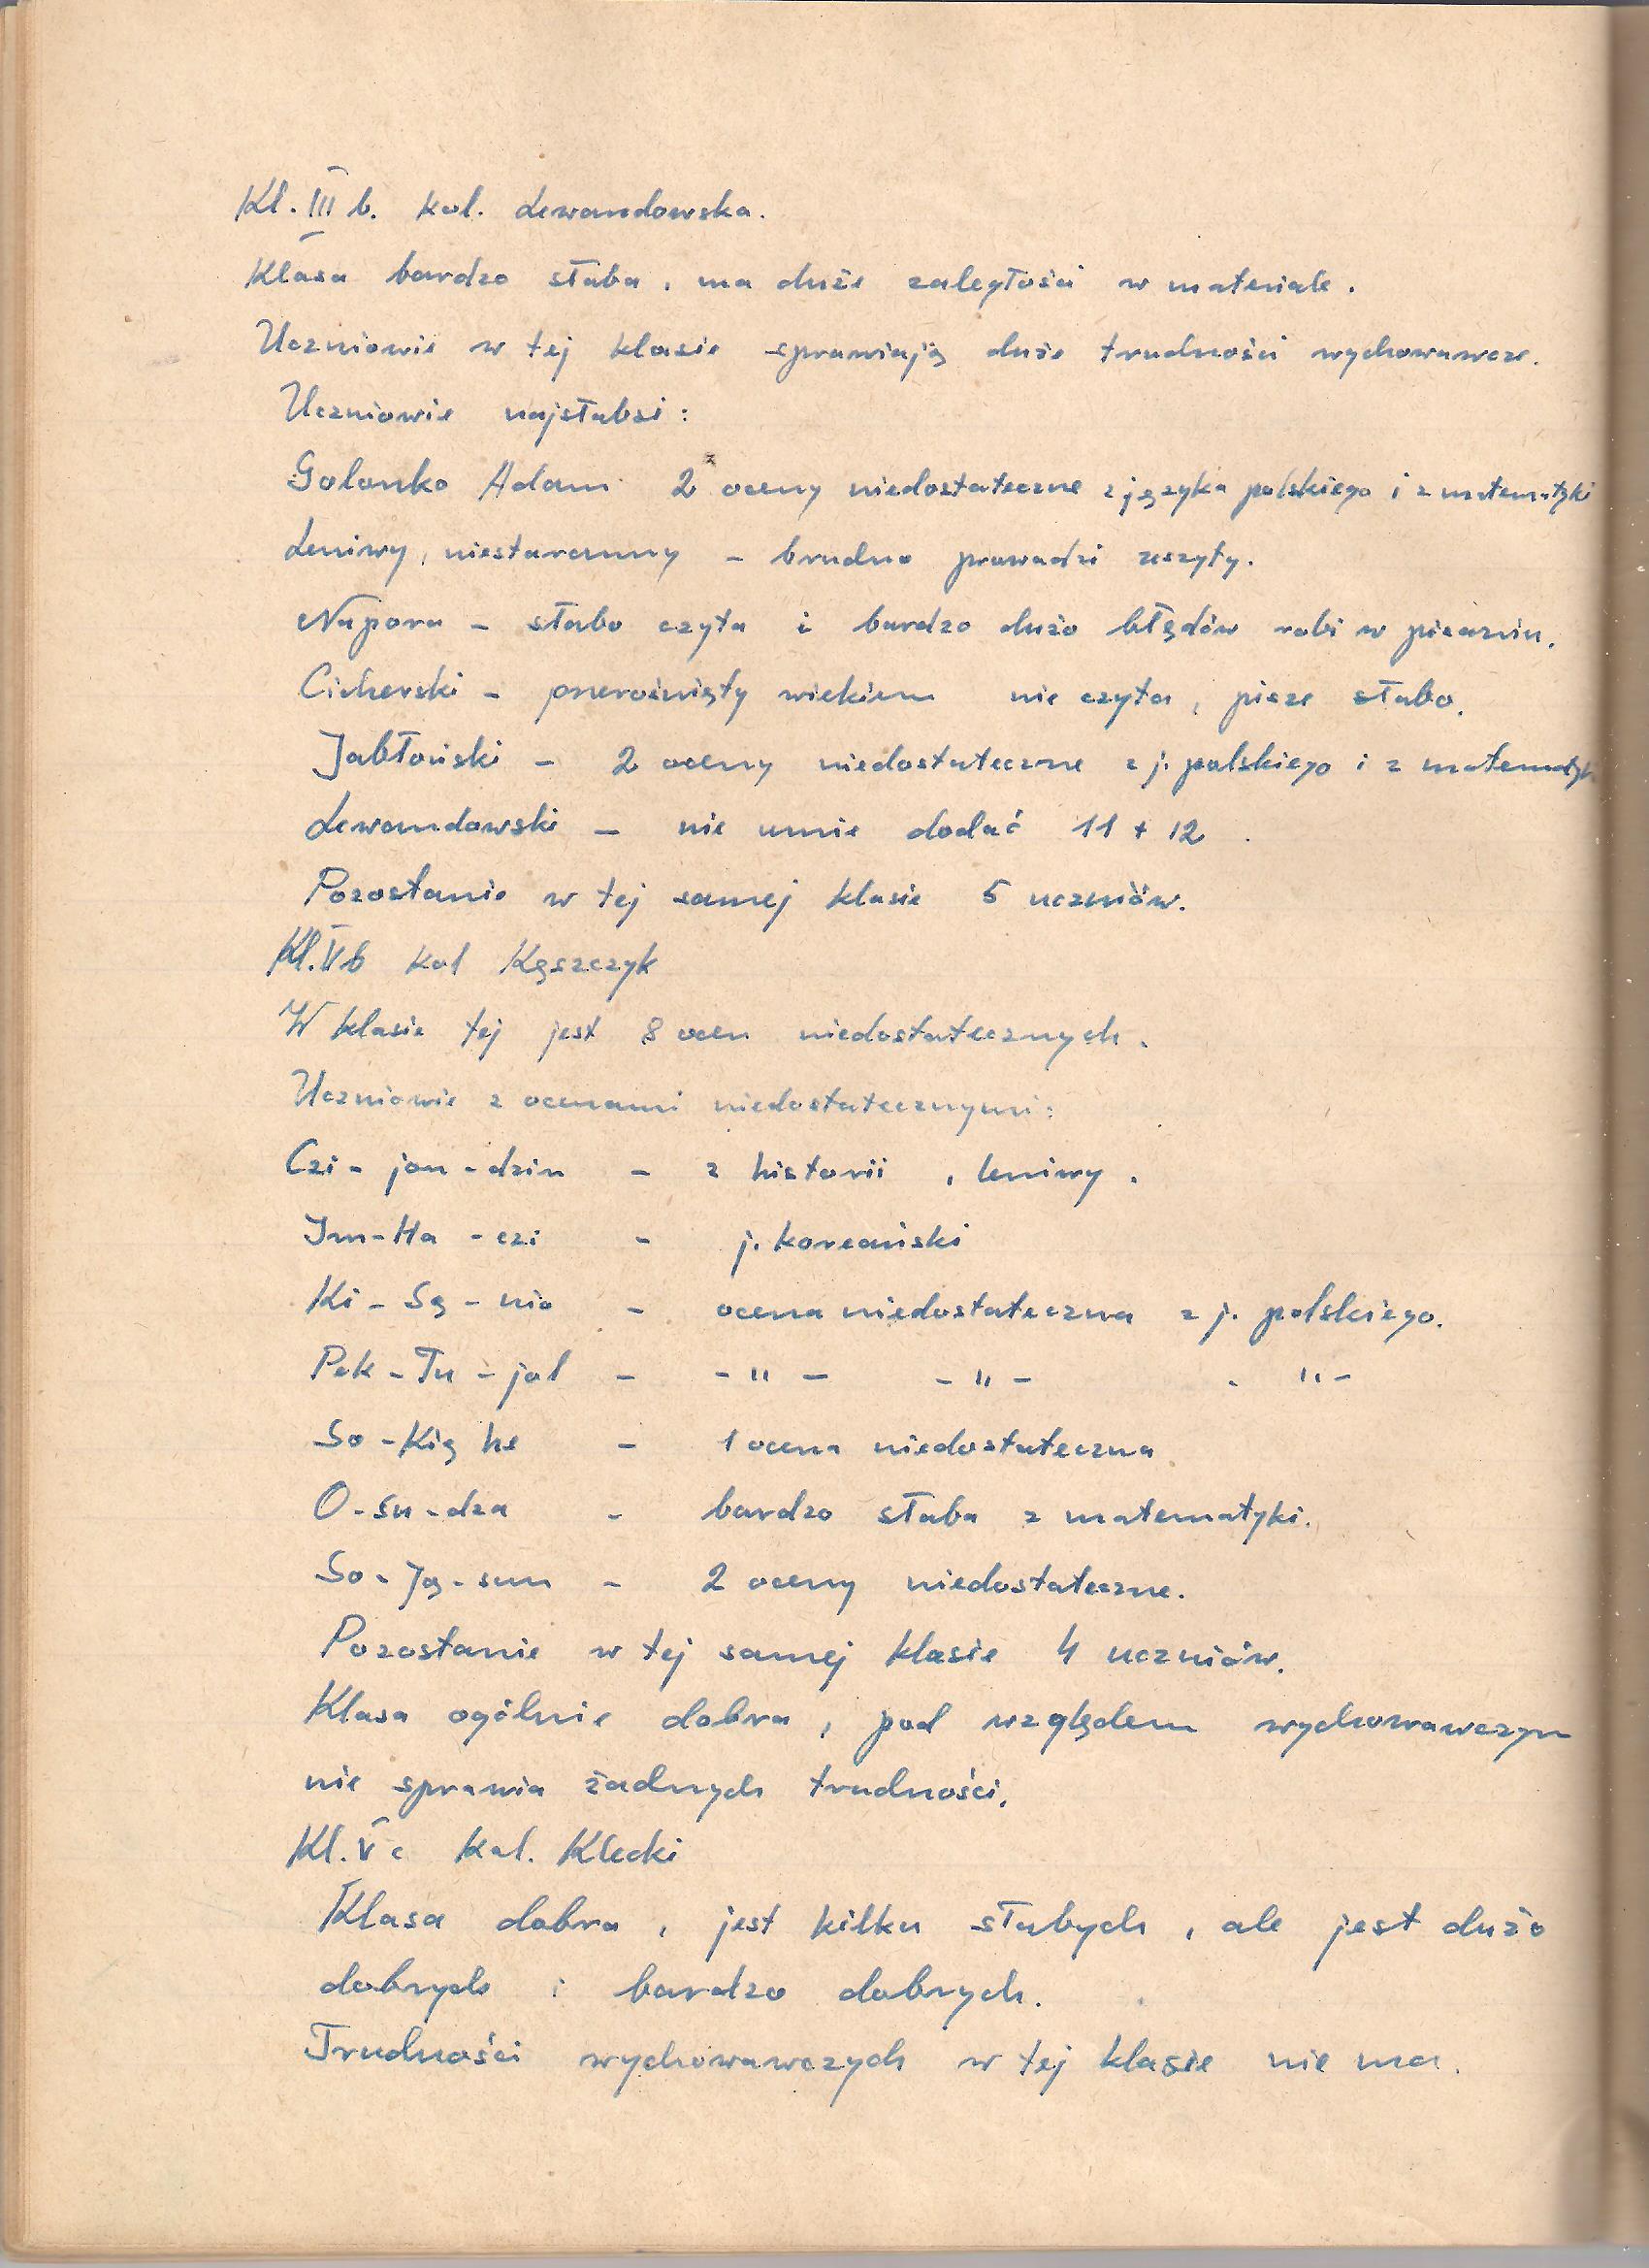 Kl. III b. kol. Lewandowska.
Klasa bardzo słaba, ma duże zaległości w materiale.
Uczniowie w tej klasie sprawiają duże trudności wychowawcze.
Uczniowie najsłabsi:
Golonko Adam 2 oceny niedostateczne z języka polskiego i z matematyki
Leniwy, niestaranny – brudno prowadzi zeszyty.
Napora – słabo czyta i bardzo dużo błędów robi w pisaniu.
Cicherski – przerośnięty wiekiem nie czyta, pisze słabo.
Jabłoński – 2 oceny niedostateczne z j. polskiego i z matematyki
Lewandowski – nie umie dodać 11 + 12.
Pozostanie w tej samej klasie 5 uczniów.
Kl. V b kol Kęszczyk
W klasie tej jest 8 ocen niedostatecznych.
Uczniowie z ocenami niedostatecznymi:
Czi - jon - dzin – z historii, leniwy.
Im - Ha - czi – j. koreański
Ki - Sę - nio – ocena niedostateczna z j. polskiego.
Pek - Tu - jol – - " - - " - - " -
So - Kię he – 1 ocena niedostateczna
O - su - dza – bardzo słaba z matematyki.
So - Ję - sun – 2 oceny niedostateczne.
Pozostanie w tej samej klasie 4 uczniów.
Klasa ogólnie dobra, pod względem wychowawczym
nie sprawia żadnych trudności.
Kl. V c kol. Klecki
Klasa dobra, jest kilku słabych, ale jest dużo
dobrych i bardzo dobrych.
Trudności wychowawczych w tej klasie nie ma.